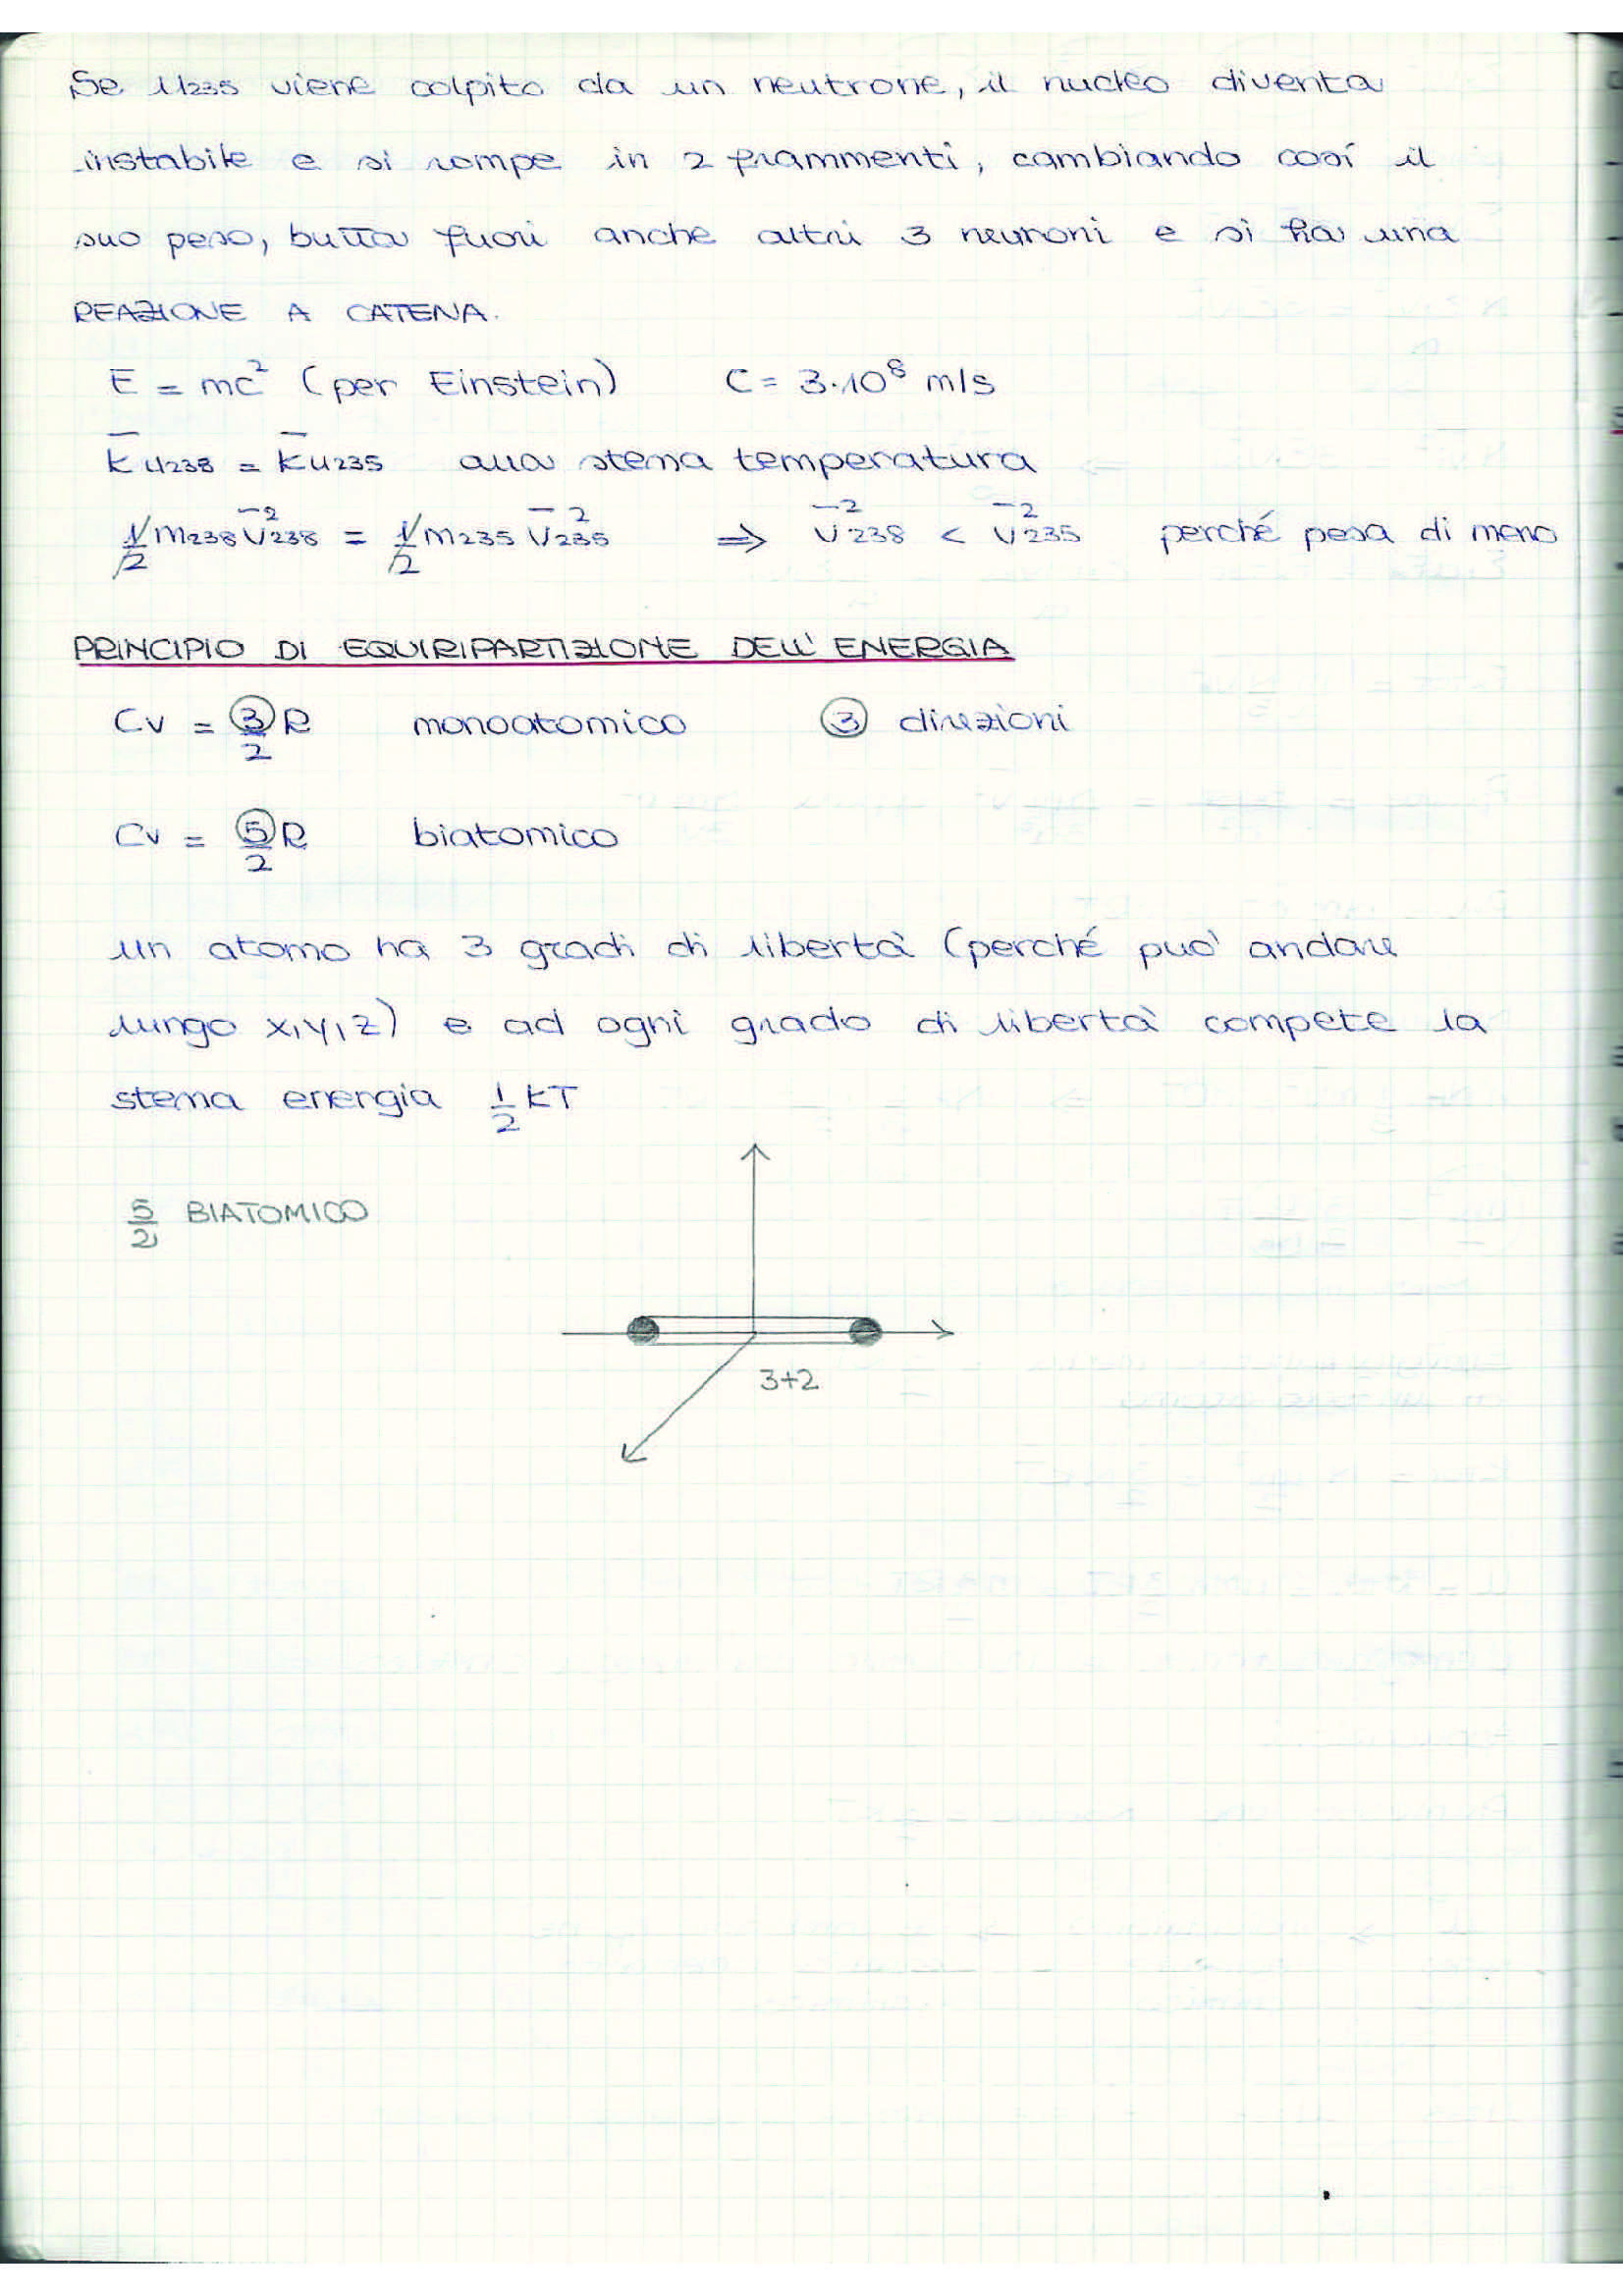 Se U235 viene colpito da un neutrone, il nucleo diventa
instabile e si rompe in 2 frammenti, cambiando così il
suo peso, butta fuori anche altri 3 neuroni e si ha una
REAZIONE A CATENA.
E = mc² (per Einstein) C = 3·10⁸ m/s
K̅U238 = K̅U235 alla stessa temperatura
1/2 m238 v̅²238 = 1/2 m235 v̅²235 ⇒ v̅²238 < v̅²235 perché pesa di meno
PRINCIPIO DI EQUIRIPARTIZIONE DELL'ENERGIA
Cv = 3/2 R monoatomico 3 direzioni
Cv = 5/2 R biatomico
un atomo ha 3 gradi di libertà (perché può andare
lungo x,y,z) e ad ogni grado di libertà compete la
stessa energia 1/2 kT
5/2 BIATOMICO
3+2